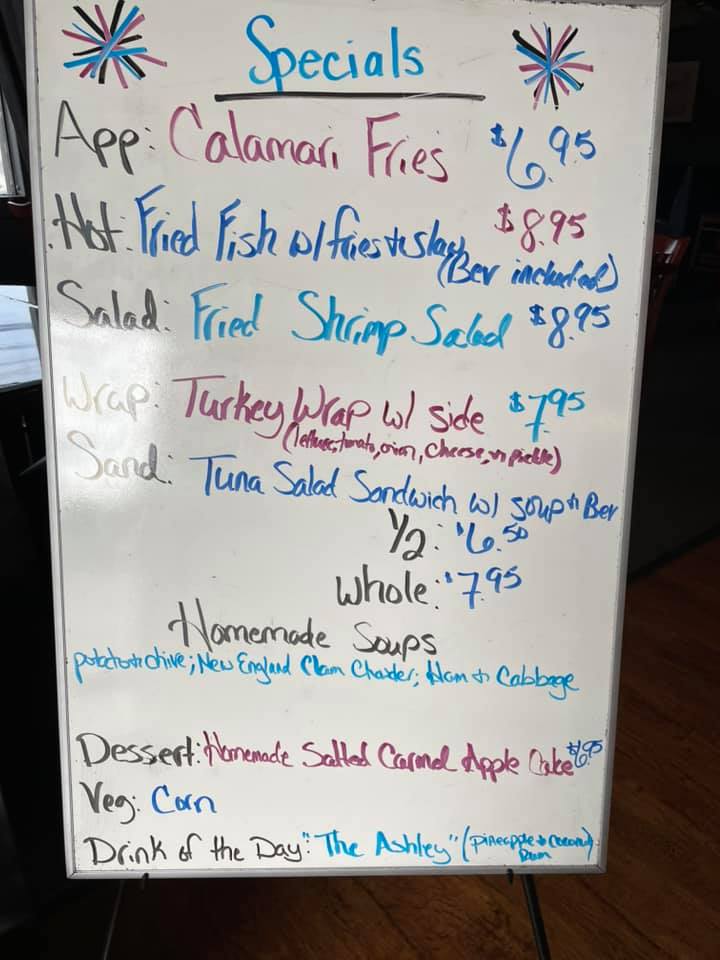 Specials
App: Calamari Fries $6.95
Hot: Fried Fish w/fries + slaw $8.95
(Bev included)
Salad: Fried Shrimp Salad $8.95
Wrap: Turkey Wrap w/ side $7.95
(lettuce, tomato, onion, cheese, n pickle)
Sand: Tuna Salad Sandwich w/ soup n Bev
1/2: $6.50
Whole: $7.95
Homemade Soups
potato + chive; New England Clam Chowder; Ham + Cabbage
Dessert: Homemade Salted Caramel Apple Cake $6.95
Veg: Corn
Drink of the Day: "The Ashley" (pineapple + coconut)
Rum